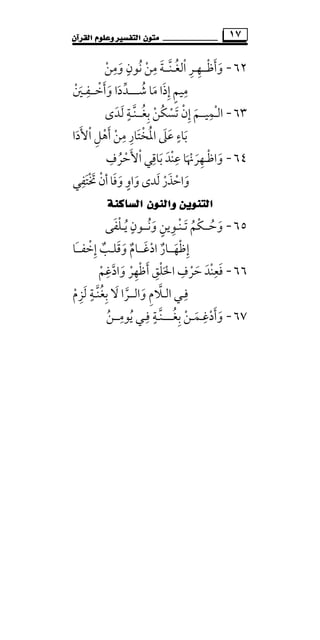 متون التفسير وعلوم القرآن ١٧
٦٢- وَأَظْـهِـرِ ٱلْغُـنَّـةَ مِنْ نُونٍ وَمِنْ
مِيمٍ إِذَا مَا شُـــدِّدَا وَأَخْـفِـيَنْ
٦٣- الْـمِيـمَ إِنْ تَسْكُنْ بِغُـنَّـةٍ لَدَى
بَاءٍ عَلَى الْمُخْتَارِ مِنْ أَهْلِ ٱلأَدَا
٦٤- وَاظْـهِرَنْهَا عِنْدَ بَاقِي ٱلأَحْرُفِ
وَاحْذَرْ لَدى وَاوٍ وَفَا أَنْ تَخْتَفِي
التنوين والنون الساكنة
٦٥- وَحُـكْمُ تَـنْـوِينٍ وَنُــونٍ يُـلْفَى
إِظْهَـارٌ ادْغَـامٌ وَقَلـبٌ إِخْفَـا
٦٦- فَعِنْدَ حَرْفِ الحَلْقِ أَظْهِرْ وَادَّغِمْ
فِـي الـلَّامِ وَالــرَّا لَا بِغُنَّةٍ لَزِمْ
٦٧- وَأَدْغِـمَـنْ بِغُــنَّـةٍ فِـي يُومِـنُ